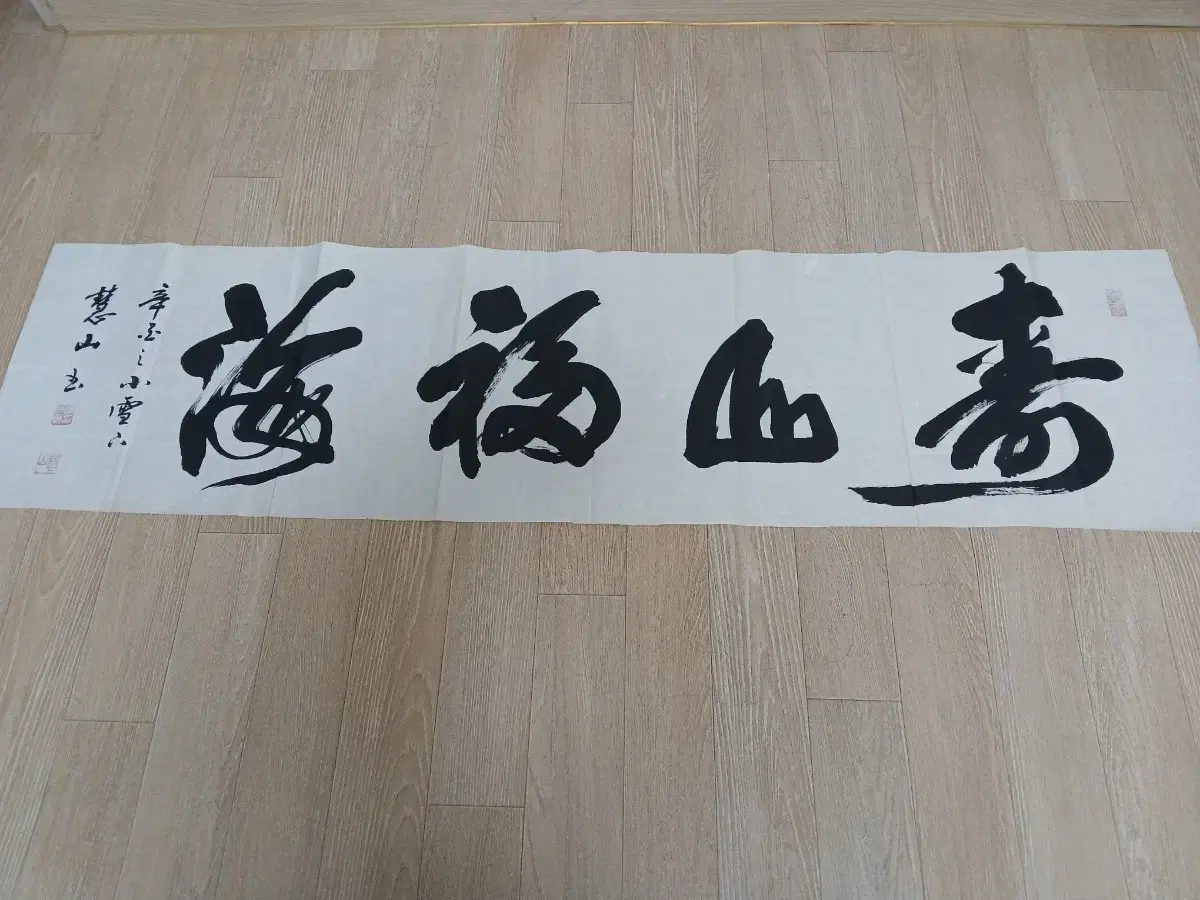 壽山福海
辛酉之小雪下
慧山書